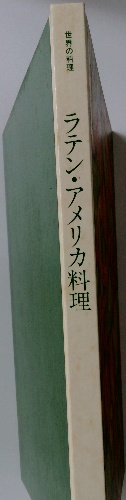 世界の料理
ラテン・アメリカ料理